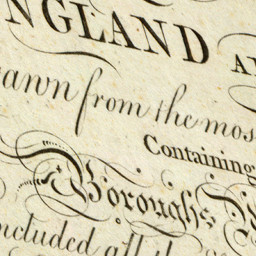 NGLAND A
rawn from the mos
Containing
Boroughs
ncluded all the